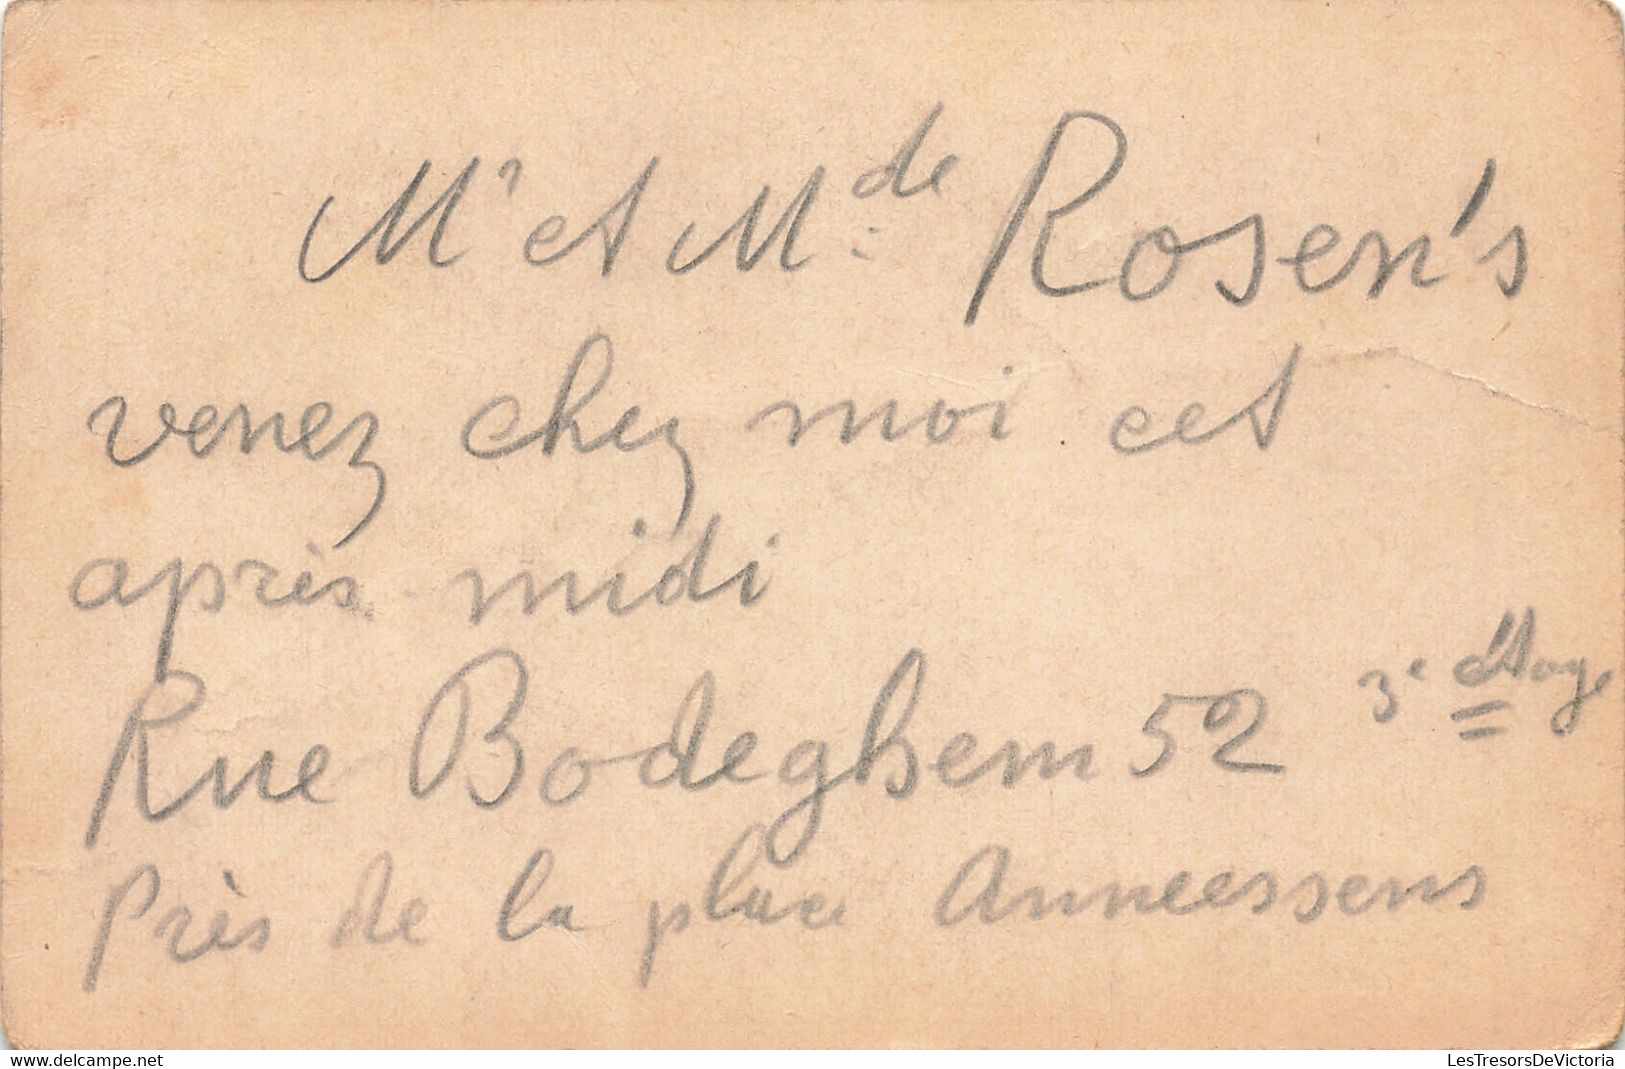 Mr et Mde Rosen's
venez chez moi cet
après midi
Rue Bodeghem 52 3e étage
Près de la place Anneessens
delcampe.net
LesTresorsDeVictoria